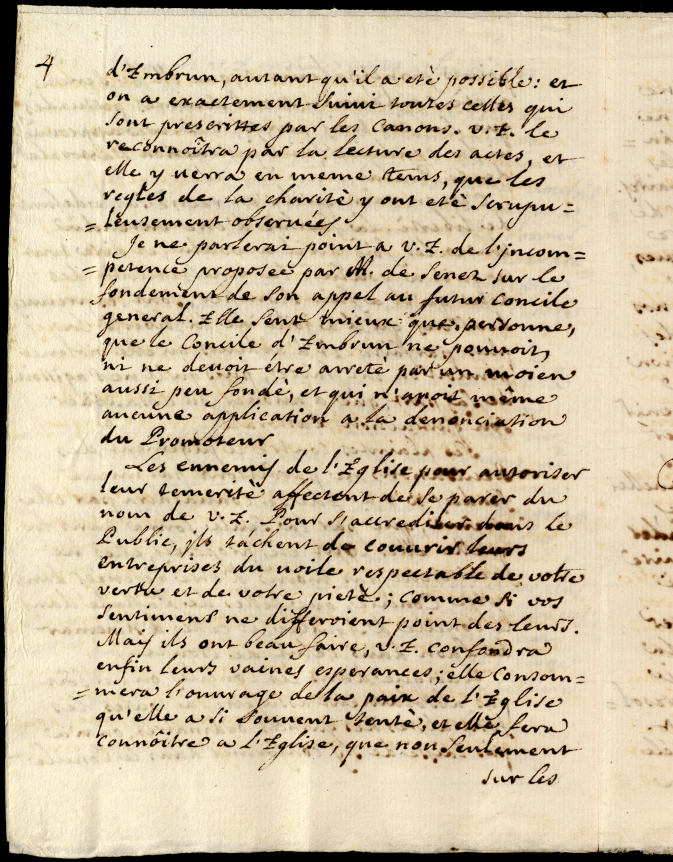 4
d'Embrun, autant qu'il a eté possible: et
on a exactement suivi toutes celles qui
sont prescrittes par les Canons. V. E. le
reconnoîtra par la lecture des actes, et
elle y verra en meme tems, que les
regles de la charitè y ont etè scrupu=
=leusement observées
Je ne parlerai point a V. E. de l'jncom=
=petence proposeé par M. de Senez sur le
fondement de son appel au futur concile
general. Elle sent mieux que personne,
que le Concile d'Embrun ne pouvoit,
ni ne devoit étre arretè par un moien
aussi peu fondè, et qui n'avoit même
aucune application a la denonciation
du Promoteur
Les ennemis de l'Eglise pour autoriser
leur temeritè affectent de se parer du
nom de V. E. Pour s'accrediter dans le
Public, jls tâchent de couvrir leurs
entreprises du voile respectable de votre
vertu et de votre pietè; comme si vos
sentimens ne differoient point des leurs.
Mais ils ont beau faire, V. E. confondra
enfin leurs vaines esperances; elle consom=
=mera l'ouvrage de la paix de l'Eglise
qu'elle a si souvent tentè, et elle fera
connôitre a l'Eglise, que non seulement
sur les